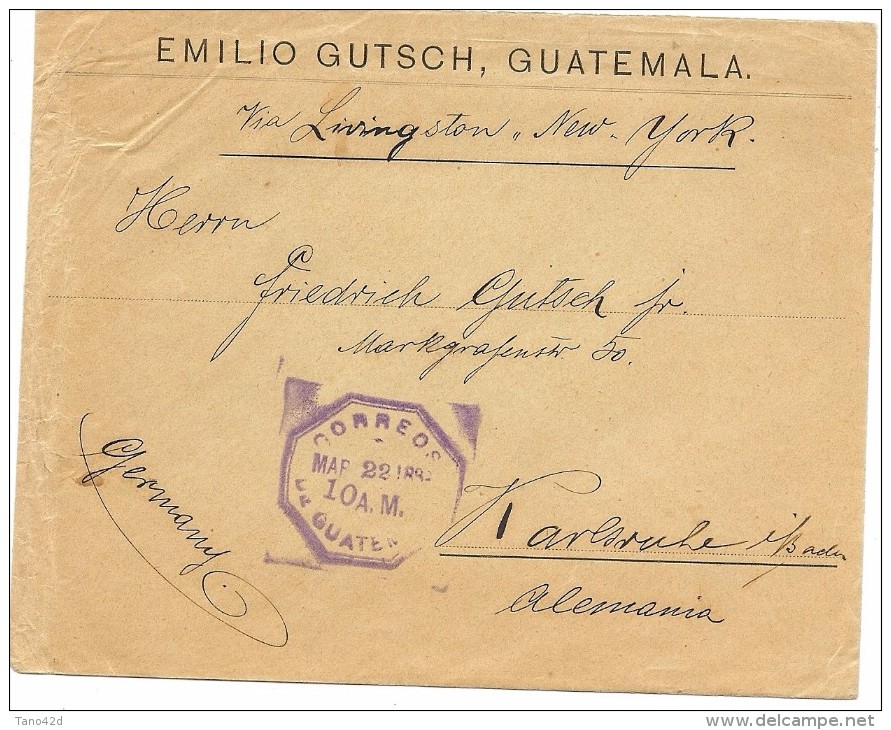 EMILIO GUTSCH, GUATEMALA.
Via Livingston „ New-York.
Herrn
Friedrich Gutsch jr.
Markgrafenstr. 50.
CORREOS
MAR 22
10 A.M.
DE GUATEM
Germany
Karlsruhe i/Baden
Alemania
Tano42d
delcampe.net